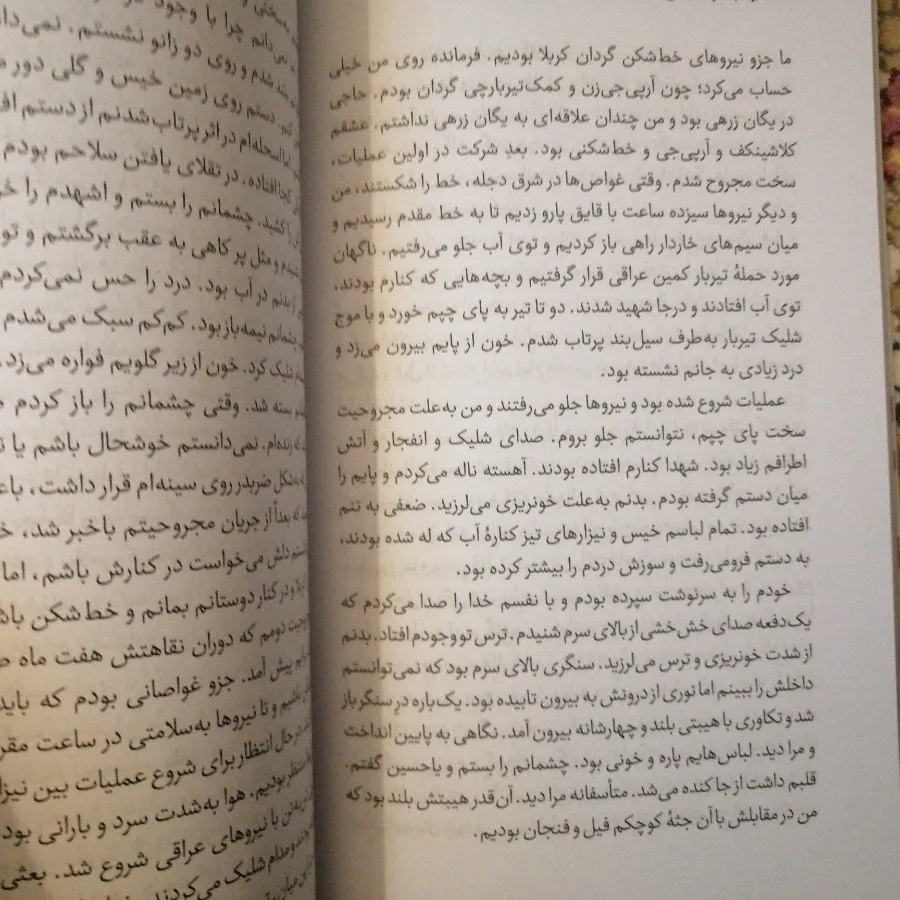 ما جزو نیروهای خط‌شکن گردان کربلا بودیم. فرمانده روی من خیلی
حساب می‌کرد؛ چون آرپی‌جی‌زن و کمک‌تیربارچی گردان بودم. حاجی
در یگان زرهی بود و من چندان علاقه‌ای به یگان زرهی نداشتم. عشقم
کلاشینکف و آرپی‌جی و خط‌شکنی بود. بعدِ شرکت در اولین عملیات،
سخت مجروح شدم. وقتی غواص‌ها در شرق دجله، خط را شکستند، من
و دیگر نیروها سیزده ساعت با قایق پارو زدیم تا به خط مقدم رسیدیم و
میان سیم‌های خاردار راهی باز کردیم و توی آب جلو می‌رفتیم. ناگهان
مورد حملهٔ تیربار کمین عراقی قرار گرفتیم و بچه‌هایی که کنارم بودند،
توی آب افتادند و درجا شهید شدند. دو تا تیر به پای چپم خورد و با موج
شلیک تیربار به‌طرف سیل‌بند پرتاب شدم. خون از پایم بیرون می‌زد و
درد زیادی به جانم نشسته بود.
عملیات شروع شده بود و نیروها جلو می‌رفتند و من به‌علت مجروحیت
سخت پای چپم، نتوانستم جلو بروم. صدای شلیک و انفجار و آتش
اطرافم زیاد بود. شهدا کنارم افتاده بودند. آهسته ناله می‌کردم و پایم را
میان دستم گرفته بودم. بدنم به‌علت خونریزی می‌لرزید. ضعفی به تنم
افتاده بود. تمام لباسم خیس و نیزارهای تیز کنارهٔ آب که له شده بودند،
به دستم فرومی‌رفت و سوزش دردم را بیشتر کرده بود.
خودم را به سرنوشت سپرده بودم و با نفسم خدا را صدا می‌کردم که
یک‌دفعه صدای خش‌خشی از بالای سرم شنیدم. ترس تو وجودم افتاد. بدنم
از شدت خونریزی و ترس می‌لرزید. سنگری بالای سرم بود که نمی‌توانستم
داخلش را ببینم اما نوری از درونش به بیرون تابیده بود. یک‌باره درِ سنگر باز
شد و تکاوری با هیبتی بلند و چهارشانه بیرون آمد. نگاهی به پایین انداخت
و مرا دید. لباس‌هایم پاره و خونی بود. چشمانم را بستم و یاحسین گفتم.
قلبم داشت از جا کنده می‌شد. متأسفانه مرا دید. آن‌قدر هیبتش بلند بود که
من در مقابلش با آن جثهٔ کوچکم فیل و فنجان بودیم.
دانم چرا با وجود
شدم و روی دو زانو نشستم. نمی‌دا
دستم روی زمین خیس و گلی دور
اسلحه‌ام در اثر پرتاب شدنم از دستم اف
کجا افتاده. در تقلای یافتن سلاحم بودم
چشمانم را بستم و اشهدم را خو
و مثل پر کاهی به عقب برگشتم و تو
بدنم در آب بود. درد را حس نمی‌کردم
چشمانم نیمه‌باز بود. کم‌کم سبک می‌شدم
شلیک کرد. خون از زیر گلویم فواره می‌زد
بسته شد. وقتی چشمانم را باز کردم
که زنده‌ام. نمی‌دانستم خوشحال باشم یا
شکل ضربدر روی سینه‌ام قرار داشت، باع
که بعداً از جریان مجروحیتم باخبر شد، خ
دلش می‌خواست در کنارش باشم، اما
و در کنار دوستانم بمانم و خط‌شکن باش
دومم که دوران نقاهتش هفت ماه
پیش آمد. جزو غواصانی بودم که باید
باشیم و تا نیروها به‌سلامتی در ساعت مقر
در حال انتظار برای شروع عملیات بین نیزا
منتظر بودیم. هوا به‌شدت سرد و بارانی بود
با نیروهای عراقی شروع شد. بعثی
و مدام شلیک می‌کردند